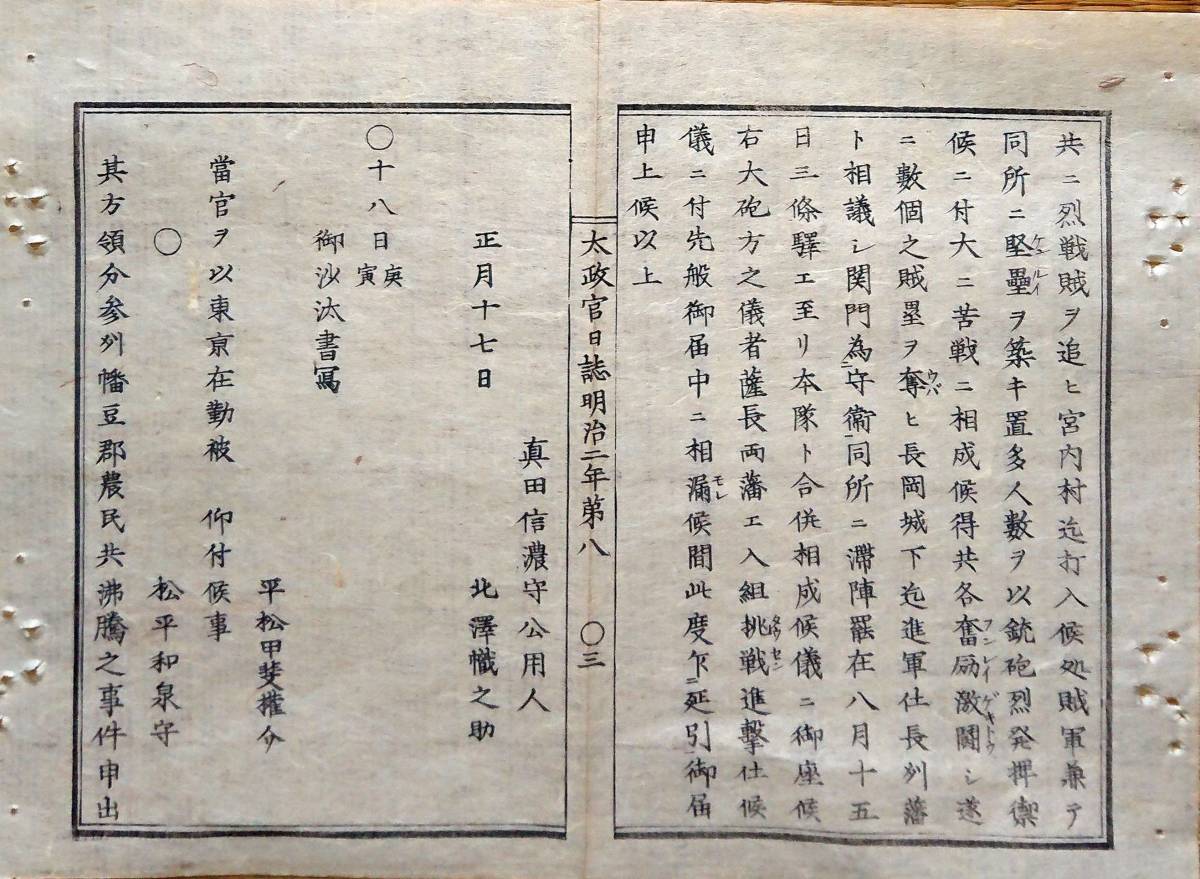 共ニ烈戦賊ヲ追ヒ宮内村迄打入候処賊軍兼テ
同所ニ堅壘ヲ築キ置多人数ヲ以銃砲烈発捍禦
ケンルイ
候ニ付大ニ苦戦ニ相成候得共各奮励激闘シ遂
フンレイゲキトウ
ニ數個之賊塁ヲ奪ヒ長岡城下迄進軍仕長州藩
ウバ
ト相議シ関門為ニ守衞一同所ニ滞陣罷在八月十五
日三條驛エ至リ本隊ト合併相成候儀ニ御座候
右大砲方之儀者薩長両藩エ入組挑戦進撃仕候
テウセン
儀ニ付先般御届中ニ相漏候間此度乍ニ延引一御届
モレ
申上候以上
太政官日誌明治二年第八 〇三
真田信濃守公用人
正月十七日 北澤幟之助
〇十八日庚寅
御沙汰書冩
平松甲斐權介
當官ヲ以東京在勤被 仰付候事
〇 松平和泉守
其方領分参州幡豆郡農民共沸騰之事件申出